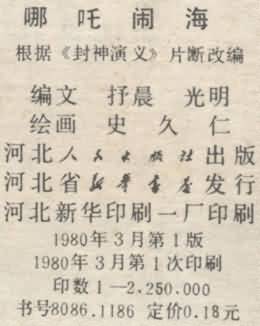 哪吒闹海
根据《封神演义》片断改编
编文 抒晨 光明
绘画 史久仁
河北人民出版社出版
河北省新华书店发行
河北新华印刷一厂印刷
1980年3月第1版
1980年3月第1次印刷
印数1—2.250.000
书号8086.1186 定价0.18元